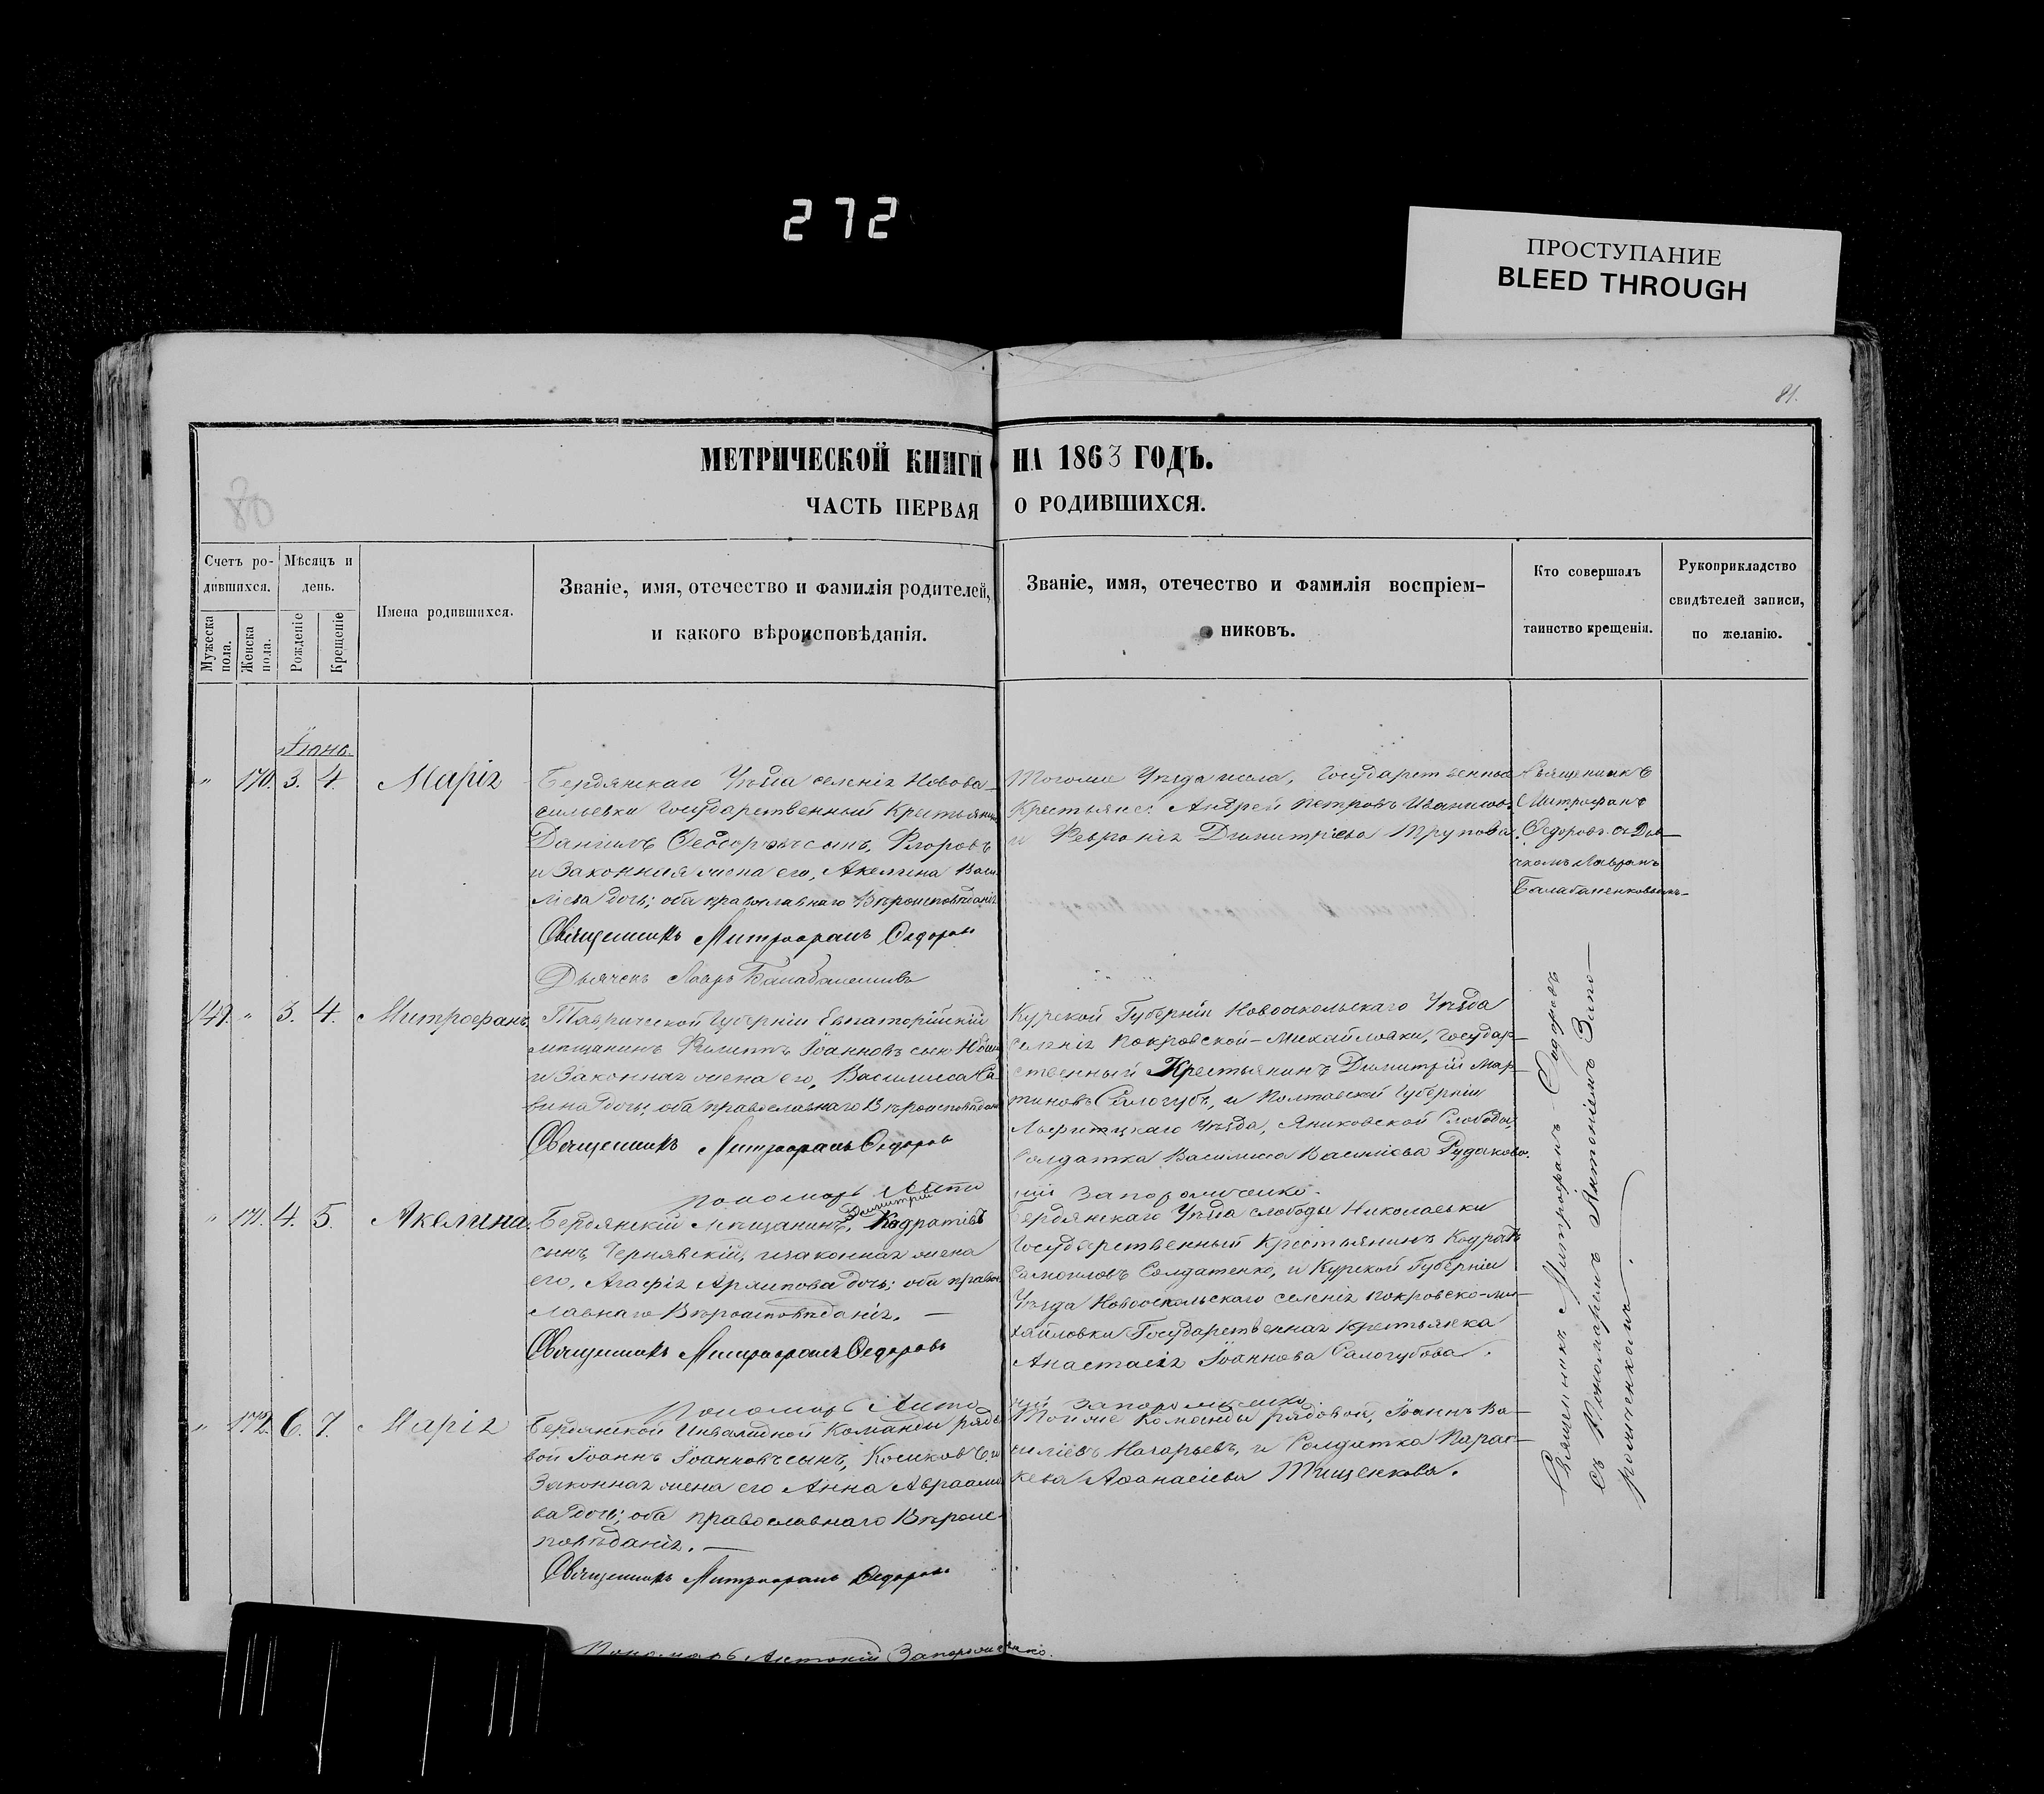 272
ПРОСТУПАНИЕ
BLEED THROUGH
81.
80
МЕТРИЧЕСКОЙ КНИГИ НА 1863 ГОДЪ.
ЧАСТЬ ПЕРВАЯ О РОДИВШИХСЯ.
Счетъ ро-
дившихся.
Мужеска пола.
Женска пола.
Мѣсяцъ и
день.
Рожденіе
Крещеніе
Имена родившихся.
Званіе, имя, отечество и фамилія родителей,
и какого вѣроисповѣданія.
Званіе, имя, отечество и фамилія воспріем-
никовъ.
Кто совершалъ
таинство крещенія.
Рукоприкладство
свидѣтелей записи,
по желанію.
Іюнь.
" 170. 3. 4. Марія
Бердянскаго Уѣзда селенія Нововa-
сильевки Государственный Крестьянинъ
Даніилъ Ѳеодоровъ сынъ, Флоровъ
и Законная жена его, Акелина Васи-
ліева дочь; оба православнаго Вѣроисповѣданія
Священникъ Митрофанъ Ѳедоровъ
Дьячекъ Лавръ
Тогоже Уѣзда и села, Государственные
Крестьяне: Андрей Петровъ
и Февронія Димитріева Трупова
Священникъ
Митрофанъ
Ѳедоровъ съ Дья-
чкомъ Лавромъ
149. " 3. 4. Митрофанъ
Таврической Губерніи Евпаторійскій
мѣщанинъ Филиппъ Іоанновъ сынъ
и Законная жена его, Василисса Са-
вина дочь; оба православнаго Вѣроисповѣданія
Священникъ Митрофанъ Ѳедоровъ
Пономарь Антоній Запорожченко.
Курской Губерніи Новооскольскаго Уѣзда
селенія Покровской-Михайловки, Государ-
ственный Крестьянинъ Димитрій Мар-
тиновъ Салогубъ, и Полтавской Губерніи
Уѣзда, Яниковской Слободы,
Солдатка Василисса Василіева Рудакова.
" 171. 4. 5. Акелина
Димитрій
Бердянскій Мѣщанинъ, Кодратіевъ
сынъ, Чернявскій, и законная жена
его, Агафія Архипова дочь; оба право-
славнаго Вѣроисповѣданія. —
Священникъ Митрофанъ Ѳедоровъ
Пономарь Антоній Запорожченко.
Бердянскаго Уѣзда слободы Николаевки
Государственный Крестьянинъ Кодратъ
Самоиловъ Солдатенко, и Курской Губерніи
Уѣзда Новооскольскаго селенія Покровско-Ми-
хайловки Государственная Крестьянка
Анастасія Іоаннова Салогубова.
" 172. 6. 7. Марія
Бердянской Инвалидной Команды рядо-
вой Іоаннъ Іоанновъ сынъ, Косиковъ, и
Законная жена его Анна Авраамо-
ва дочь; оба православнаго Вѣроис-
повѣданія. —
Священникъ Митрофанъ Ѳедоровъ
Пономарь Антоній Запорожченко.
Тойже Команды рядовой, Іоаннъ Ва-
силіевъ и Солдатка Парас-
кева Аѳанасіева Тищенкова.
Священникъ Митрофанъ Ѳедоровъ
съ Пономаремъ Антоніемъ Запо-
рожченкомъ.